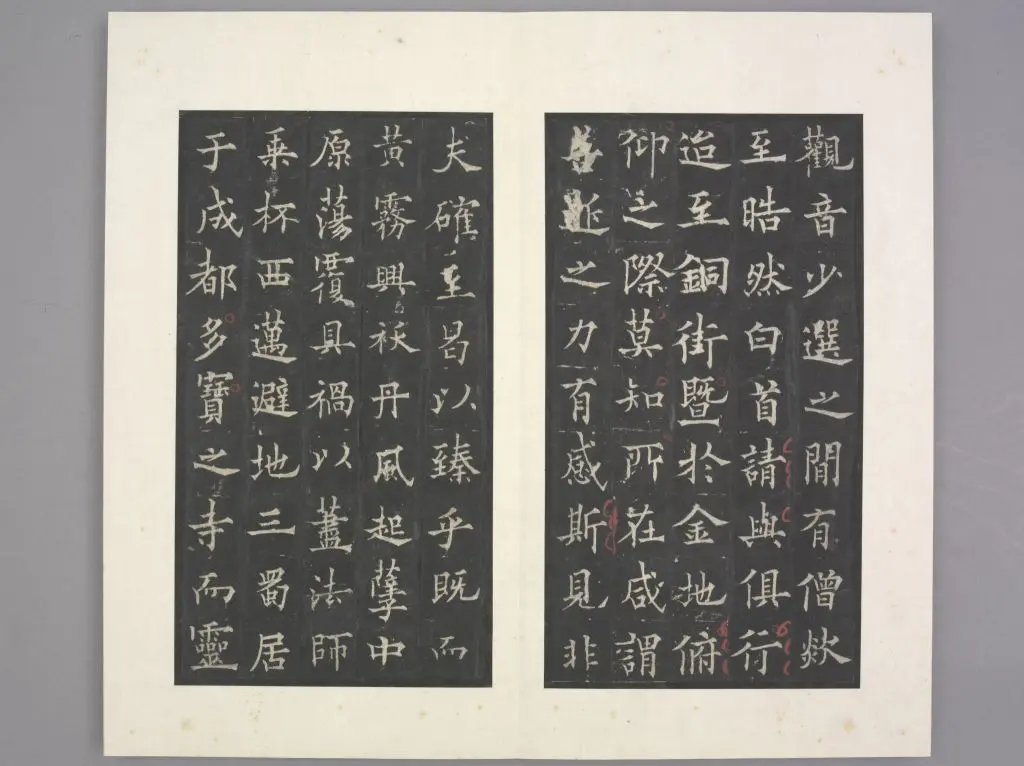 觀音少選之間有僧欻
至晧然白首請與俱行
迨至銅街暨於金地俯
仰之際莫知所在咸謂
善逝之力有感斯見非
夫確至曷以臻乎既而
黃霧興祅丹風起孽中
原蕩覆具禍以蓋法師
乘杯西邁避地三蜀居
于成都多寶之寺而靈